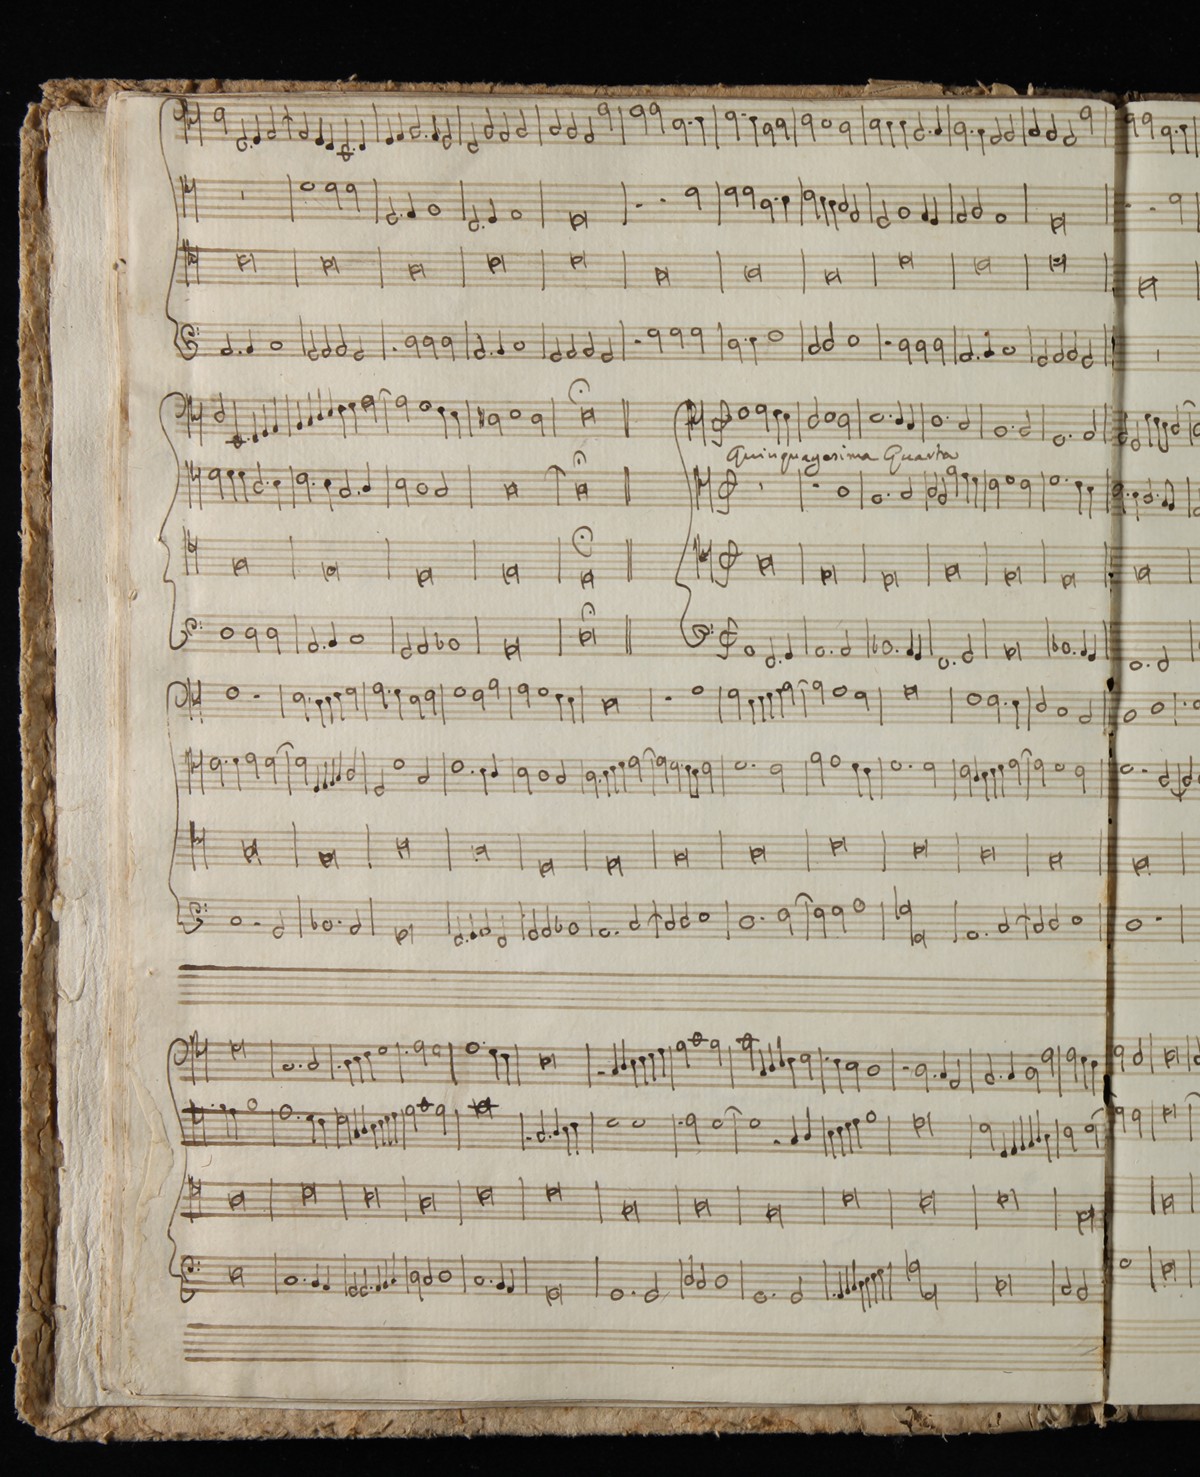 Quinquagesima Quarta